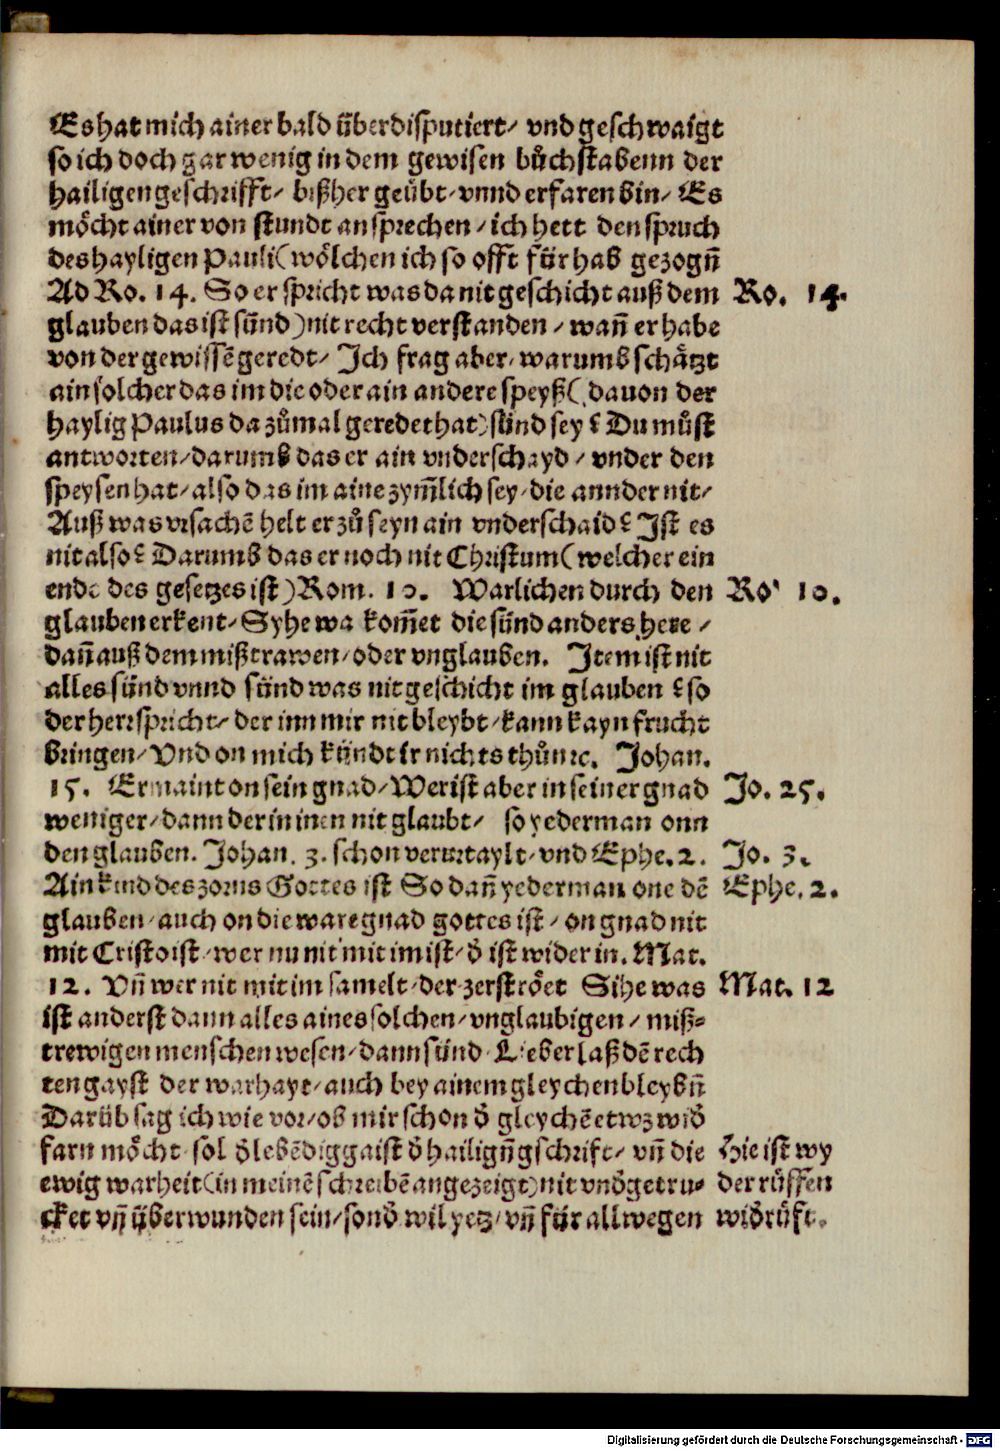 Es hat mich ainer bald überdisputiert/ vnd geschwaigt
so ich doch gar wenig in dem gewisen bůchstabenn der
hailigen geschrifft/ bißher geübt/ vnnd erfaren bin/ Es
möcht ainer von stundt an sprechen/ ich hett den spruch
des hayligen Pauli (wölchen ich so offt fürhab gezogn̄
Ad Ro. 14. So er spricht was da nit geschicht auß dem Ro. 14.
glauben das ist sünd) nit recht verstanden/ wan̄ er habe
von der gewissē geredt/ Ich frag aber/ warumb schätzt
ain solcher das im die oder ain andere speyß (dauon der
haylig Paulus da zůmal geredet hat) sünd sey? Du můst
antworten/ darumb das er ain vnderschayd/ vnder den
speysen hat/ also das im aine zym̄lich sey/ die annder nit/
Auß was vrsachē helt er zů seyn ain vnderschaid? Ist es
nit also? Darumb das er noch nit Christum (welcher ein
ende des gesetzes ist) Rom. 10. Warlichen durch den Ro' 10.
glauben erkent/ Syhe wa kom̄et die sünd anders here/
dan̄ auß dem mißtrawen/ oder vnglauben. Item ist nit
alles sünd vnnd sünd was nit geschicht im glauben? so
der herr spricht/ der inn mir nit bleybt/ kann kayn frucht
bringen/ Vnd on mich kündt ir nichts thůn ꝛc. Johan.
15. Er maint on sein gnad/ Wer ist aber in seiner gnad Jo. 25.
weniger/ dann der in inen nit glaubt/ so yederman onn
den glauben. Johan. 3. schon verurtaylt/ vnd Ephe. 2. Jo. 3.
Ain kind des zorns Gottes ist So dan̄ yederman one dē Ephe. 2.
glauben/ auch on die ware gnad gottes ist/ on gnad nit
mit Cristo ist/ wer nu nit mit im ist/ d̄ ist wider in. Mat.
12. Vn̄ wer nit mit im samelt/ der zerströet Sihe was Mat. 12
ist anderst dann alles aines solchen/ vnglaubigen/ miß⸗
trewigen menschen wesen/ dann sünd Lieber laß dē rech
ten gayst der warhayt/ auch bey ainem gleychen bleybn̄
Darüb sag ich wie vor/ ob mir schon d̄ gleychē etwz wid̄
farn möcht sol d̄ lebēdig gaist d̄ hailign̄ gschrift/ vn̄ die Hie ist wy
ewig warheit (in meinē schreibē angezeigt) nit vnd̄getru⸗ der růffen
cket vn̄ überwunden sein/ sond̄ wil yetz/ vn̄ für allwegen wid̄růft.
Digitalisierung gefördert durch die Deutsche Forschungsgemeinschaft - DFG